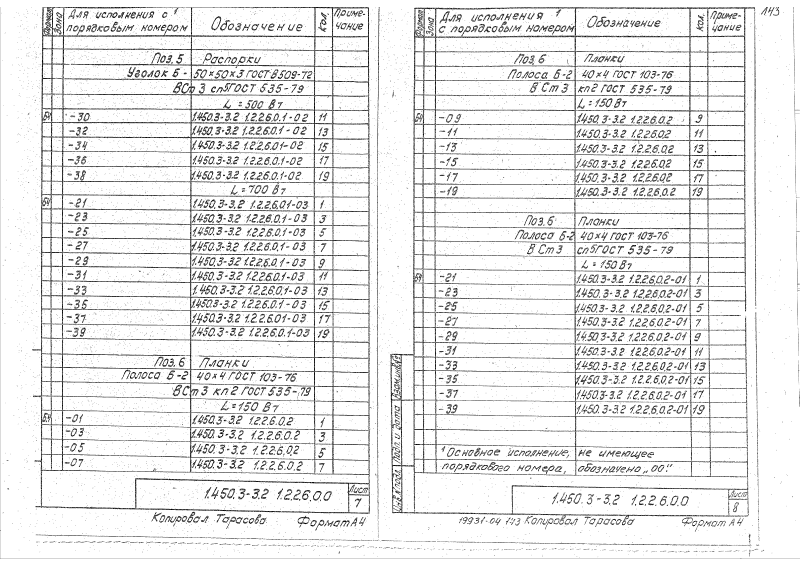 Формат Зона Для исполнения с 1 порядковым номером Обозначение Кол. Приме-чание
Поз.5 Распорки
Уголок Б- 50×50×3 ГОСТ 8509-72
ВСт3 сп5 ГОСТ 535-79
L=500 Вт
БЧ -30 1.450.3-3.2 1.2.2.6.0.1-02 11
-32 1.450.3-3.2 1.2.2.6.0.1-02 13
-34 1.450.3-3.2 1.2.2.6.0.1-02 15
-36 1.450.3-3.2 1.2.2.6.0.1-02 17
-38 1.450.3-3.2 1.2.2.6.0.1-02 19
L=700 Вт
БЧ -21 1.450.3-3.2 1.2.2.6.0.1-03 1
-23 1.450.3-3.2 1.2.2.6.0.1-03 3
-25 1.450.3-3.2 1.2.2.6.0.1-03 5
-27 1.450.3-3.2 1.2.2.6.0.1-03 7
-29 1.450.3-3.2 1.2.2.6.0.1-03 9
-31 1.450.3-3.2 1.2.2.6.0.1-03 11
-33 1.450.3-3.2 1.2.2.6.0.1-03 13
-35 1.450.3-3.2 1.2.2.6.0.1-03 15
-37 1.450.3-3.2 1.2.2.6.0.1-03 17
-39 1.450.3-3.2 1.2.2.6.0.1-03 19
Поз.6 Планки
Полоса Б-2 40×4 ГОСТ 103-76
ВСт3 кп2 ГОСТ 535-79
L=150 Вт
БЧ -01 1.450.3-3.2 1.2.2.6.0.2 1
-03 1.450.3-3.2 1.2.2.6.0.2 3
-05 1.450.3-3.2 1.2.2.6.0.2 5
-07 1.450.3-3.2 1.2.2.6.0.2 7
1.450.3-3.2 1.2.2.6.0.0 Лист 7
Копировал Тарасова Формат А4
143
Формат Зона Для исполнения 1 с порядковым номером Обозначение Кол. Приме-чание
Поз.6 Планки
Полоса Б-2 40×4 ГОСТ 103-76
ВСт3 кп2 ГОСТ 535-79
L=150 Вт
БЧ -09 1.450.3-3.2 1.2.2.6.0.2 9
-11 1.450.3-3.2 1.2.2.6.0.2 11
-13 1.450.3-3.2 1.2.2.6.0.2 13
-15 1.450.3-3.2 1.2.2.6.0.2 15
-17 1.450.3-3.2 1.2.2.6.0.2 17
-19 1.450.3-3.2 1.2.2.6.0.2 19
Поз.6 Планки
Полоса Б-2 40×4 ГОСТ 103-76
ВСт3 сп5 ГОСТ 535-79
L=150 Вт
БЧ -21 1.450.3-3.2 1.2.2.6.0.2-01 1
-23 1.450.3-3.2 1.2.2.6.0.2-01 3
-25 1.450.3-3.2 1.2.2.6.0.2-01 5
-27 1.450.3-3.2 1.2.2.6.0.2-01 7
-29 1.450.3-3.2 1.2.2.6.0.2-01 9
-31 1.450.3-3.2 1.2.2.6.0.2-01 11
-33 1.450.3-3.2 1.2.2.6.0.2-01 13
-35 1.450.3-3.2 1.2.2.6.0.2-01 15
-37 1.450.3-3.2 1.2.2.6.0.2-01 17
-39 1.450.3-3.2 1.2.2.6.0.2-01 19
1 Основное исполнение, не имеющее
порядкового номера, обозначено „00."
Инв.№ подл. Подп. и дата Взам.инв.№
1.450.3-3.2 1.2.2.6.0.0 Лист 8
19931-04 143 Копировал Тарасова Формат А4